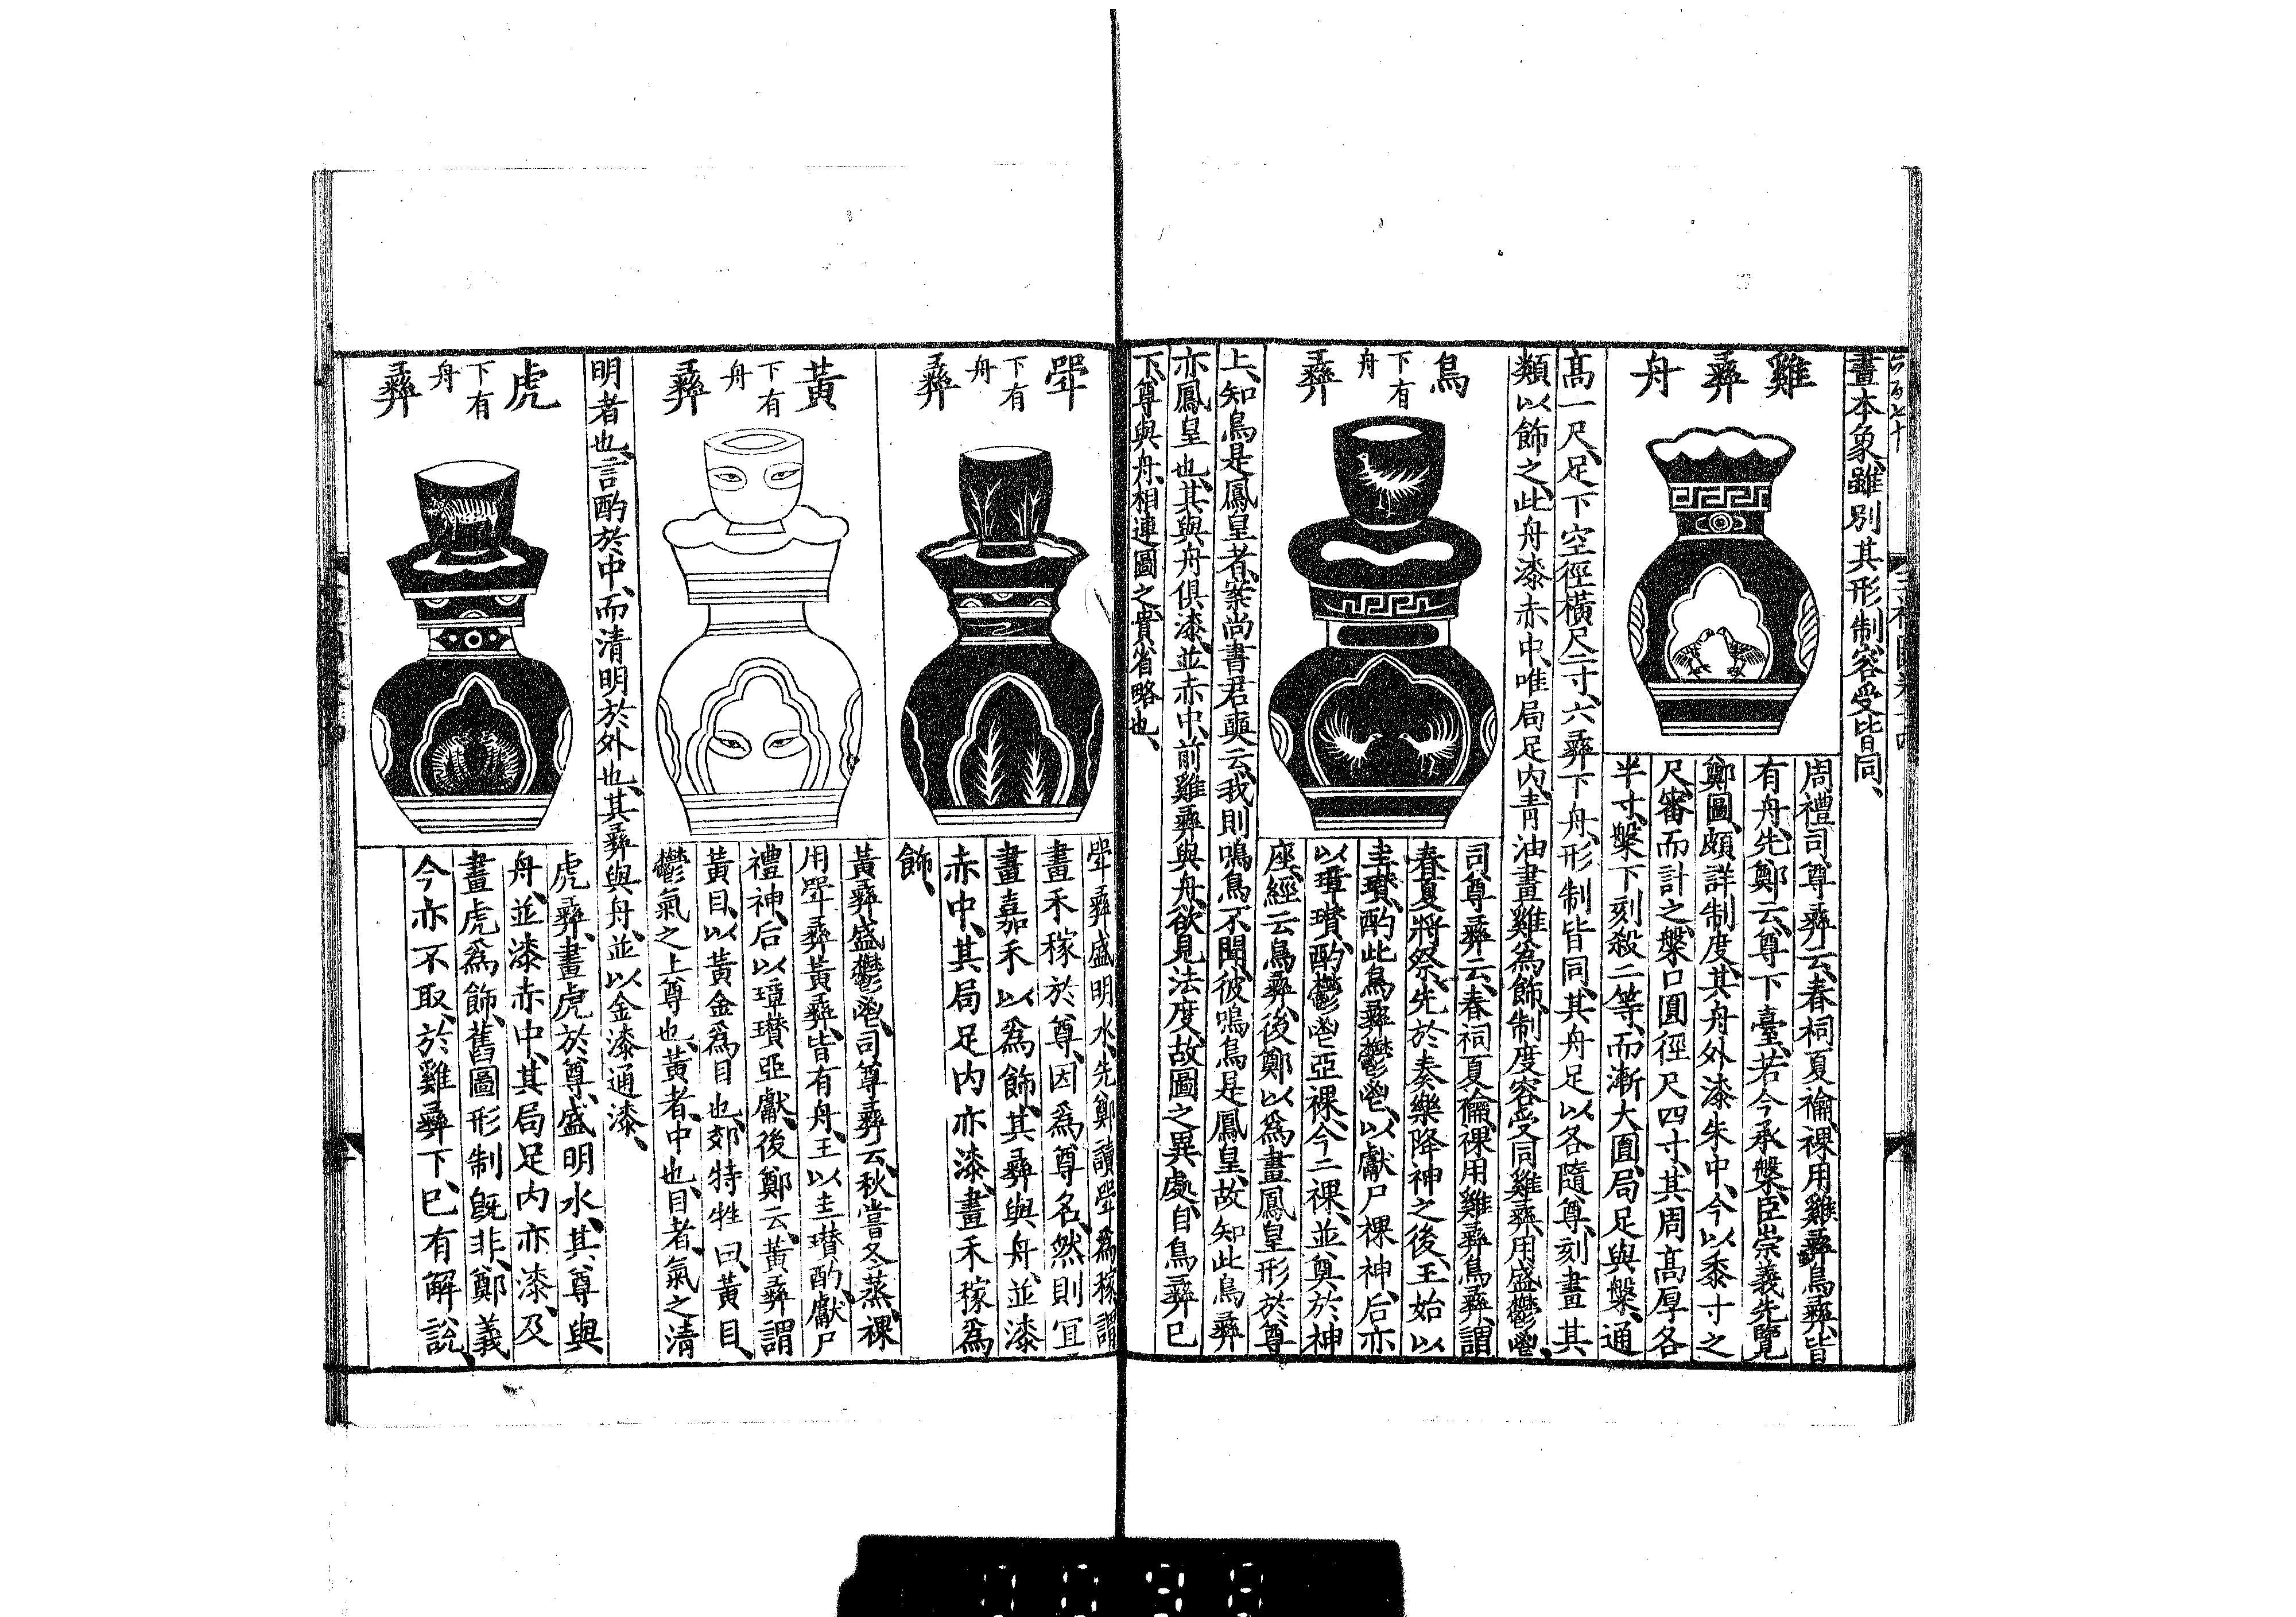 畫本象雖別其形制容受皆同、
雞彝舟
周禮司尊彝云、春祠夏禴、祼用雞彝鳥彝、皆
有舟、先鄭云、尊下臺、若今承槃、臣崇義先覽
鄭圖、頗詳制度、其舟外漆朱中、今以黍寸之
尺、審而計之、槃口圓徑尺四寸、其周高厚各
半寸、槃下刻殺二等、而漸大圓、局足與槃、通
高一尺、足下空徑橫尺二寸、六彝下舟、形制皆同、其舟足以各隨尊、刻畫其
類以飾之、此舟漆赤中、唯局足內、青油畫雞為飾、制度容受同雞彝、用盛鬱鬯、
鳥彝
下有
舟
司尊彝云、春祠夏禴、祼用雞彝鳥彝、謂
春夏將祭、先於奏樂降神之後、王始以
圭瓚、酌此鳥彝鬱鬯、以獻尸祼神、后亦
以璋瓚、酌鬱鬯亞祼、今二祼、並奠於神
座、經云鳥彝、後鄭以為畫鳳皇形於尊
上、知鳥是鳳皇者、案尚書君奭云、我則鳴鳥不聞、彼鳴鳥是鳳皇、故知此鳥彝
亦鳳皇也、其與舟俱漆、並赤中、前雞彝與舟、欲見法度、故圖之異處、自鳥彝已
下、尊與舟、相連圖之、貴省略也、
斝彝
下有
舟
斝彝盛明水、先鄭讀斝為稼、謂
畫禾稼於尊、因為尊名、然則宜
畫嘉禾以為飾、其彝與舟、並漆
赤中、其局足內亦漆、畫禾稼為
飾、
黃彝
下有
舟
黃彝盛鬱鬯、司尊彝云、秋嘗冬蒸、祼
用斝彝黃彝、皆有舟、王以圭瓚酌、獻尸
禮神、后以璋瓚亞獻、後鄭云、黃彝謂
黃目、以黃金為目也、郊特牲曰、黃目、
鬱氣之上尊也、黃者、中也、目者、氣之清
明者也、言酌於中、而清明於外也、其彝與舟、並以金漆通漆、
虎彝
下有
舟
虎彝、畫虎於尊、盛明水、其尊與
舟、並漆赤中、其局足內亦漆、及
畫虎為飾、舊圖形制既非、鄭義
今亦不取、於雞彝下、已有解說、